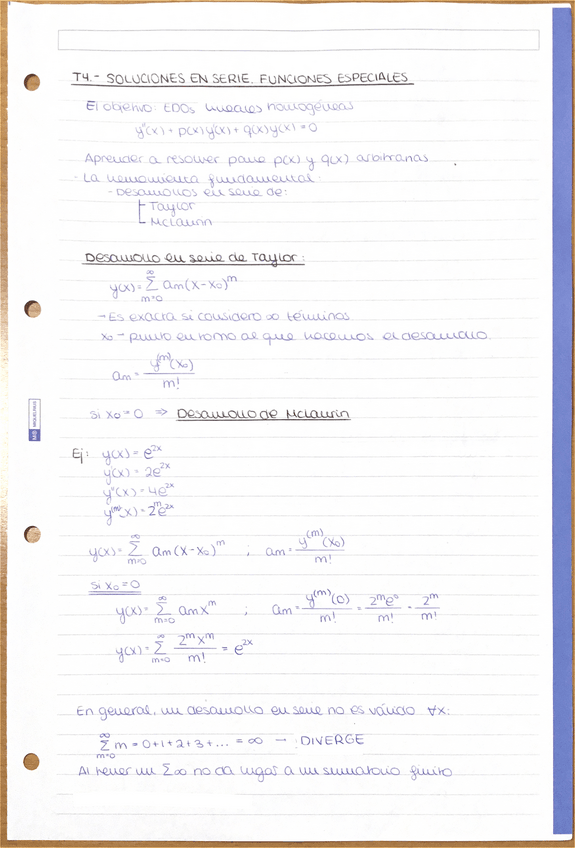 T4.- SOLUCIONES EN SERIE. FUNCIONES ESPECIALES
El objetivo: EDOs lineales homogéneas
y''(x) + p(x)y'(x) + q(x)y(x) = 0
Aprender a resolver para p(x) y q(x) arbitrarias
- La herramienta fundamental:
- Desarrollos en serie de:
Taylor
McLaurin
Desarrollo en serie de Taylor:
y(x) = ∑_{m=0}^{∞} am(x-x₀)^m
- Es exacta si considero ∞ términos
x₀ - punto entorno al que hacemos el desarrollo.
am = y^(m)(x₀) / m!
Si x₀ = 0 ⇒ Desarrollo de McLaurin
MB MIQUELRIUS
Ej: y(x) = e^{2x}
y'(x) = 2e^{2x}
y''(x) = 4e^{2x}
y^(m)(x) = 2^m e^{2x}
y(x) = ∑_{m=0}^{∞} am(x-x₀)^m ; am = y^(m)(x₀) / m!
Si x₀ = 0
y(x) = ∑_{m=0}^{∞} am x^m ; am = y^(m)(0) / m! = 2^m e^0 / m! = 2^m / m!
y(x) = ∑_{m=0}^{∞} 2^m x^m / m! = e^{2x}
En general, un desarrollo en serie no es válido ∀x:
∑_{m=0}^{∞} m = 0+1+2+3+... = ∞ → DIVERGE
Al tener un ∑∞ no da lugar a un sumatorio finito